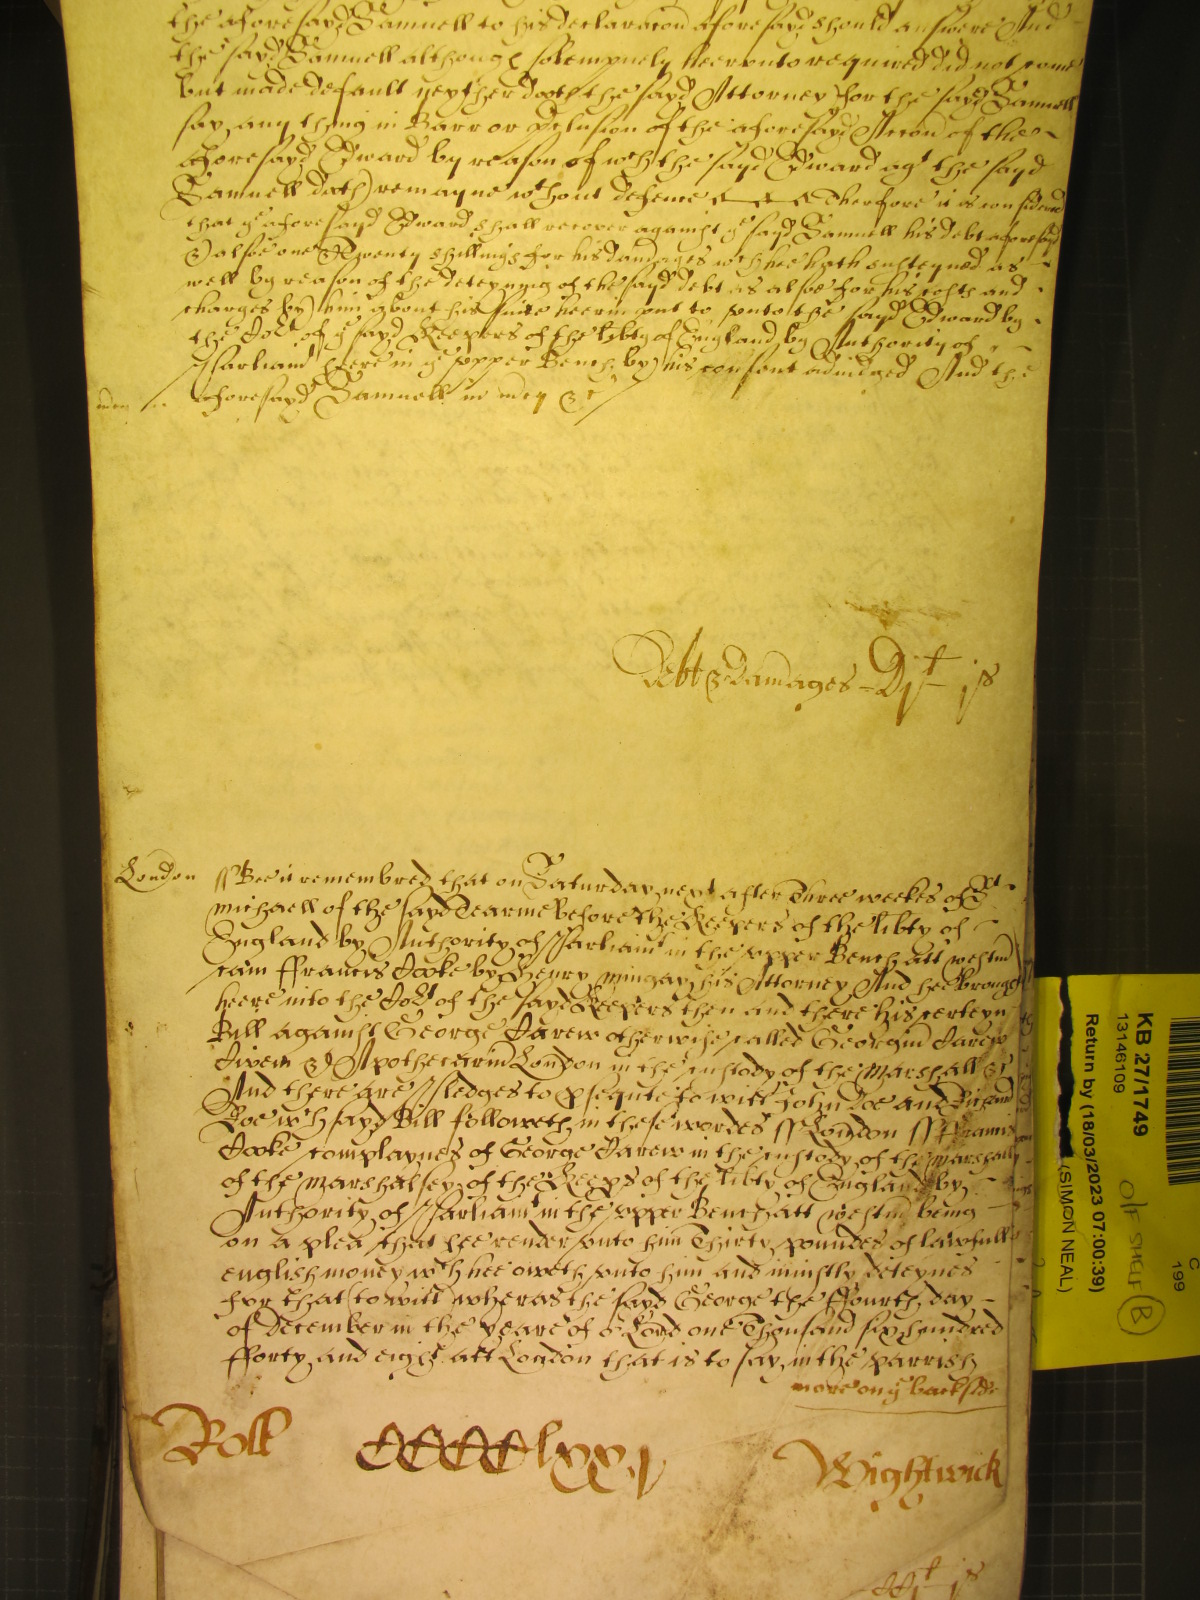 the aforesayd Samuell to his declaracon aforesayd should answere And
the sayd Samuell although solempnely heerunto required did not come
but made default neyther doth the sayd Attorney for the sayd Samuell
say any thing in Barr or of the aforesayd Accon of the
aforesayd Edward by reason of wch the sayd Edward agt the sayd
Samuell doth remayne wthout defence Therfore it is considered
that ye aforesayd Edward shall recover against ye sayd Samuell his debt aforesayd
& alsoe one & Twenty shillings for his damages wch hee hath susteyned as
well by reason of the deteyning of the sayd debt as alsoe for his costs and
charges by him about his suite heerin put to unto the sayd Edward by
the Cort of ye sayd Keepers of the libty of England by Authority of
Parliamt heere in ye upper Bench by his consent adiudged And the
mcy aforesayd Samuell in mcy &c
Debt & damages - Dj - js
London ss Bee it remembred that on Saturday next after Three weekes of St
Michaell of the sayd Tearme before the Keepers of the libty of
England by Authority of Parliamt in the upper Bench att westm
cam ffrancis Cooke by Henry Mingay his Attorney And hee brought
heere into the Cort of the sayd Keepers then and there his certeyn
Bill against George Carew otherwise called Georgiu Carew
Civem & Apothecariu London in the custody of the Marshall &c
And there are Pledges to psequte to witt John Doe and Richard
Roe wch sayd Bill followeth in these wordes ss London ss ffrancis
Cooke complaynes of George Carew in the custody of the Marshall
of the Marshalsey of the Keeps of the libty of England by
Authority of Parliamt in the upper Bench att westm being
on a plea that hee render unto him Thirty poundes of lawfull
english money wch hee oweth unto him and iniustly deteynes
for that (to witt) wheras the sayd George the ffourth day
of December in the yeare of or Lord one Thousand six hundred
fforty and eight att London that is to say in the parrish
more on ye backside
Roll CCCClxxj Wightwick
js
KB 27/1749
13146109
Return by (18/03/2023 07:00:39)
(SIMON NEAL)
C
199
B